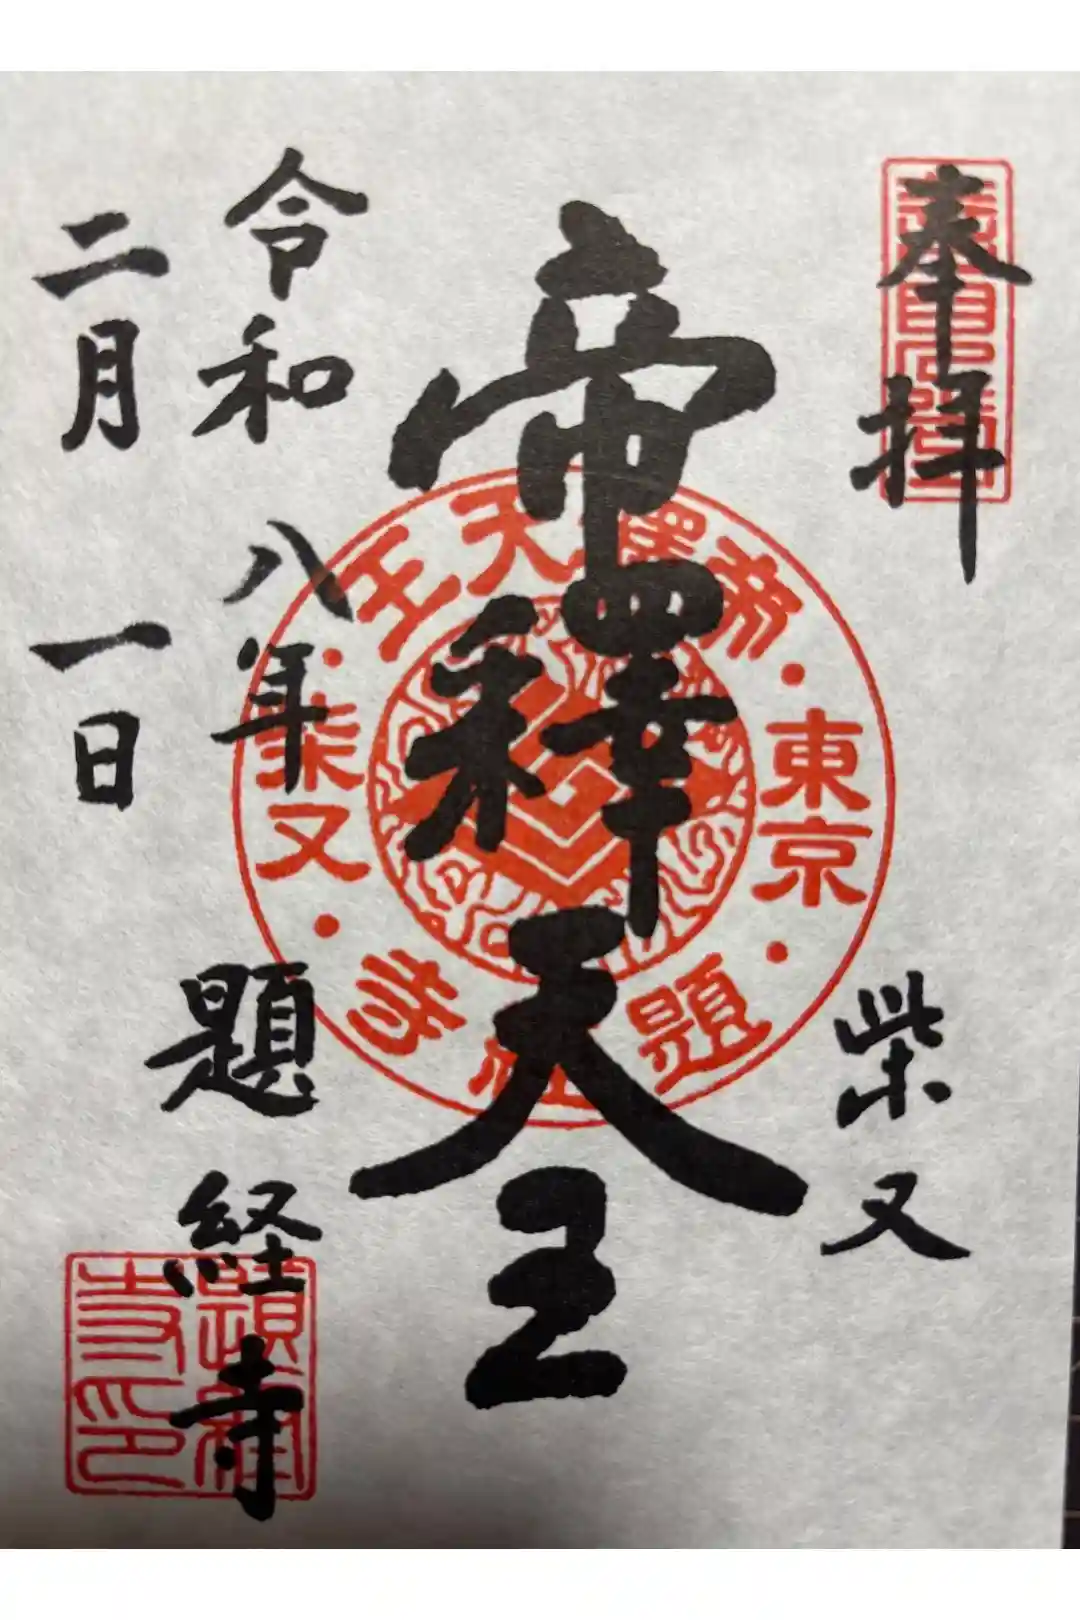 奉拝
柴又
帝釋天王
令和八年
二月一日
題経寺
東京
帝釋天王
柴又
題経寺
題経寺印